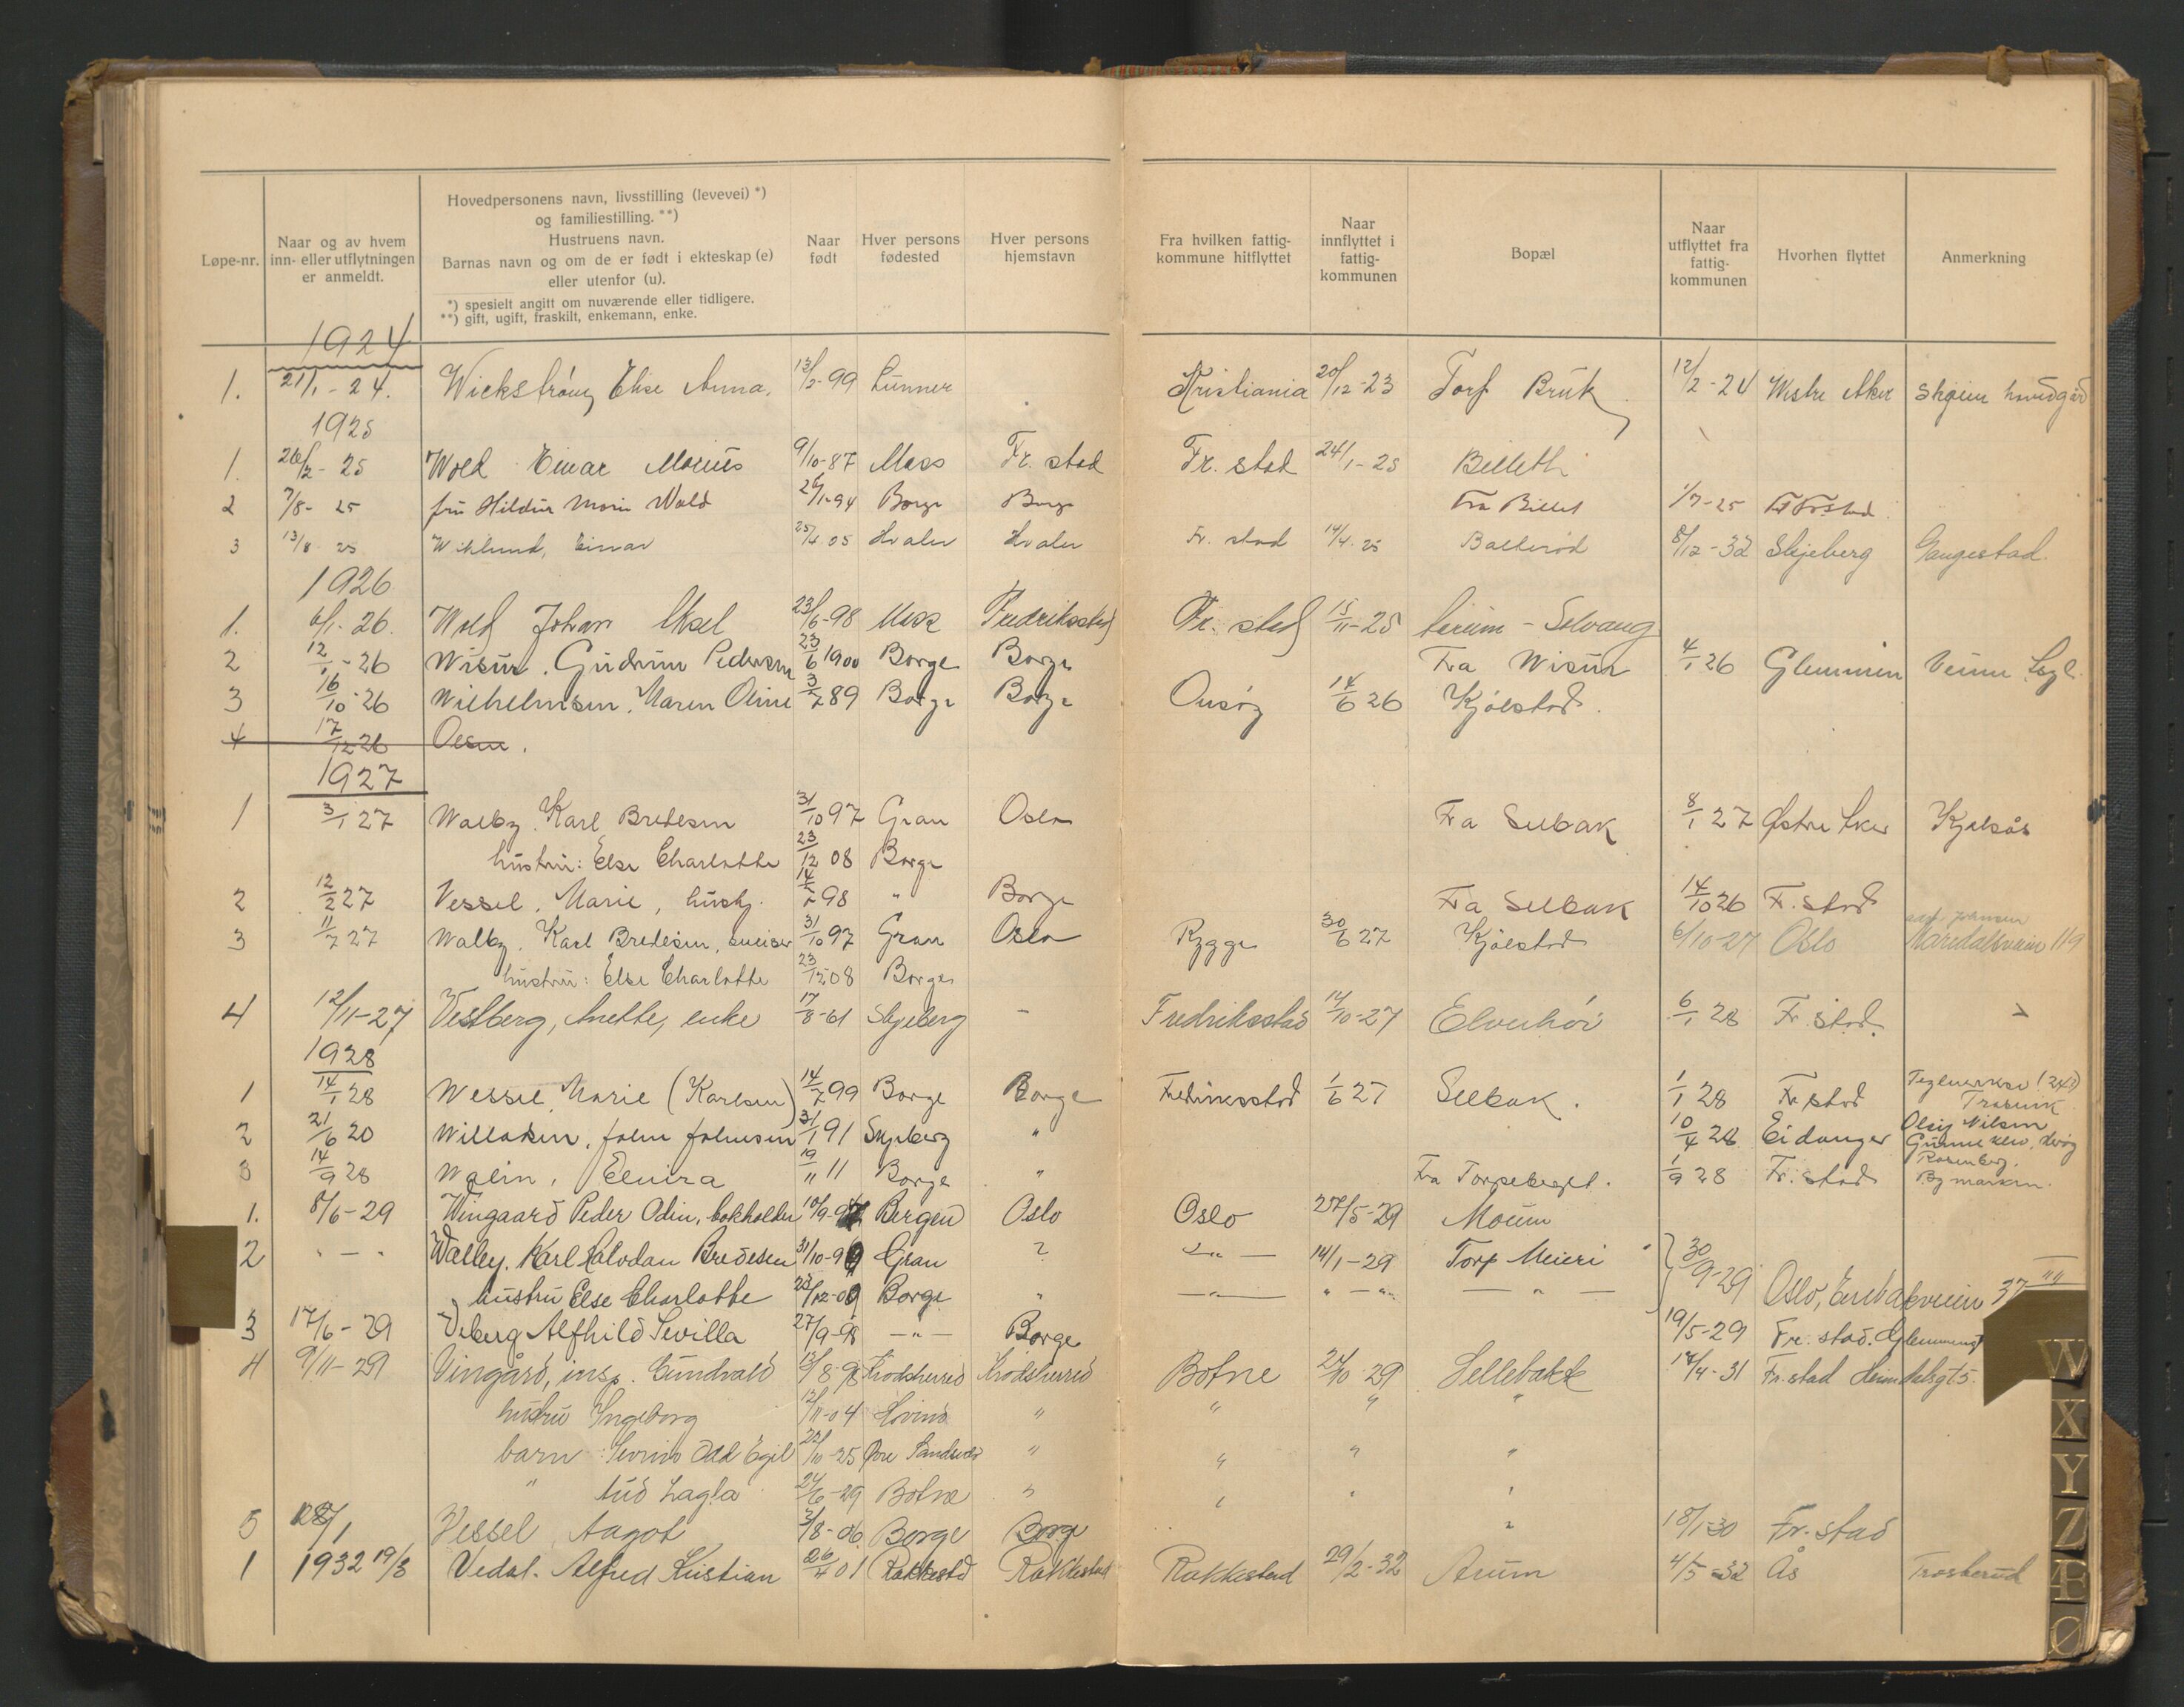 Løpe-nr.
Naar og av hvem
inn- eller utflytningen
er anmeldt.
Hovedpersonens navn, livsstilling (levevei) *)
og familiestilling. **)
Hustruens navn.
Barnas navn og om de er født i ekteskap (e)
eller utenfor (u).
*) spesielt angitt om nuværende eller tidligere.
**) gift, ugift, fraskilt, enkemann, enke.
Naar
født
Hver persons
fødested
Hver persons
hjemstavn
Fra hvilken fattig-
kommune hitflyttet
Naar
innflyttet i
fattig-
kommunen
Bopæl
Naar
utflyttet fra
fattig-
kommunen
Hvorhen flyttet
Anmerkning
1924
1. 21/1-24. Wickstrøm, Elise Anna. 13/2-99 Lunner Kristiania 20/12-23 Torp Bruk 12/2-24 Vestre Aker Skøien hovedgård
1925
1. 26/2-25 Wold Einar Marius 9/10-87 Moss Fr. stad Fr. stad 24/1-25 Billeth
2 7/8-25 fru Hildur Marie Wold 26/1-94 Borge Borge Fra Billet 1/7-25 Fr.stad
3 13/8 25 Wiklund, Einar 25/4 05 Hvaler Hvaler Fr. stad 14/4-25 Balterød 8/12-32 Skjeberg Gangestad.
1926
1. 6/1-26. Wold Johan Aksel 23/6-98 Moss Fredriksstad Fr. stad 15/11-25 Årum - Solvang
2 12/1-26 Wisur. Gudrun Pedersen 23/6 1900 Borge Borge Fra Wisur 4/1 26 Glemmen
3 16/10-26 Wilhelmsen. Maren Oline 3/7 89 Borge Borge Onsøy 14/6 26 Kjølstad.
4 17/12 26 Olsen.
1927
1 3/1 27 Walby. Karl Bredesen 31/10 97 Gran Oslo Fra Selbak 8/1 27 Østre Aker Kjelsås
hustru: Else Charlotte 23/12 08 Borge
2 12/2 27 Vessel. Marie, hushj. 14/7 98 " Borge Fra Selbak 14/10 26 F. stad
3 11/7 27 Walby. Karl Bredesen, sveiser 31/10 97 Gran Oslo Rygge 30/6 27 Kjølstad 6/10-27 Oslo Maridalsveien 119
hustru: Else Charlotte 23/12 08 Borge
4 12/11-27 Vestberg, Anette, enke 17/8-61 Skjeberg - Fredriksstad 14/10-27 Elvehøi 6/1 28 Fr. stad.
1928
1 14/1 28 Wessel, Marie (Karlsen) 14/7 99 Borge Borge Fredriksstad 1/6 27 Selbak. 1/1 28 Fr. stad Teglverksv. (24) Trosvik
2 21/6 20 Willaksen, John Johnsen 31/1 91 Skjeberg " 10/4 28 Eidanger Nilsen
3 14/9 28 Walin, Elvira 19/11 11 Borge " Fra Torpeberget. 1/9 28 Fr. stad Rosenberg. Bymarken.
1. 8/6-29 Wingaard Peder Odin, bokholder 10/9-97 Bergen Oslo Oslo 27/5-29 Moum
2 " — " Walley. Karl Halvdan Bredesen 31/10-99 Gran ? — " — 14/1-29 Torp Meieri 30/9-29
hustru Else Charlotte 23/12-09 Borge " — " — " — " — " — Oslo, Enebakveien 37
3 17/6-29 Viberg Alfhild Sevilla 27/9-98 — " — Borge 19/5-29 Fr. stad. Glemmengt
4 9/11-29 Vingård, insp. Gundvald 13/8-98 Krødsherred Krødsherred Botne 24/10-29 Sellebakk 17/4-31 Fr.stad Heimdalsgt 5.
hustru Ingeborg 12/11-04 Hovind " " " "
barn: Odd Egil 22/10-25 Øvre Sandsvær " " " "
" Aud Lagla 24/6-29 Botne " " " "
5 28/1 Vessel, Aagot 3/8-06 Borge Borge " 18/1-30 Fr.-stad
1 1932 19/3 Vedal. Alfred Kristian 26/4 01 Rakkestad Rakkestad Rakkestad 29/2-32 Årum 4/5-32 Ås Trosterud
W
X
Y
Z
Æ
Ø